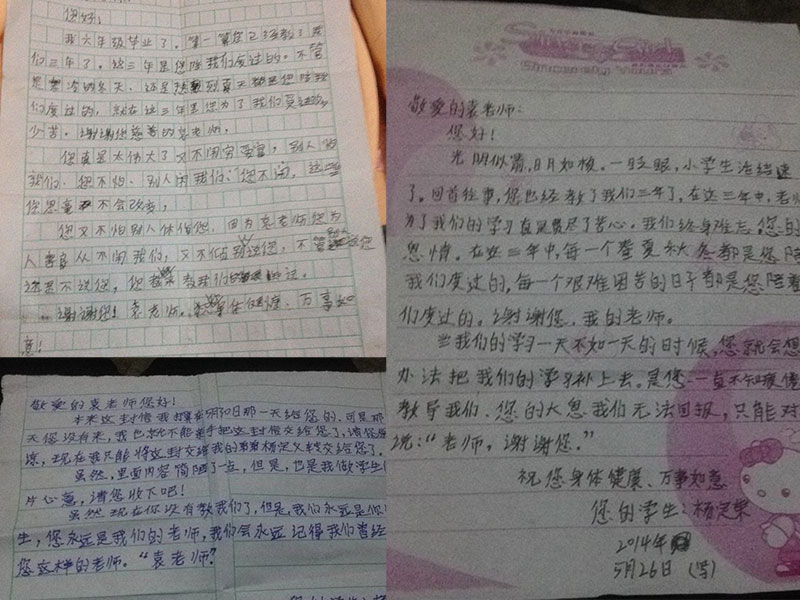 您好!
我六年级毕业了,算一算您已经教了我
们三年了,这三年是您陪我们度过的。不管
是寒冷的冬天、还是热到夏天都是您陪我
们度过的,就在这三年里您为了我们
少苦。谢谢您慈善的袁老师。
您真是太伟大了又不闲穷爱富,别人
我们、您不怕、别人闲我们、您不闲,这
您思毫不会改变,
您又不怕别人体伯您,因为袁老师您为
人善良从不闲我们,又不怕别说您,不
谢谢您!袁老师。身体健康、万事如
意!
敬爱的袁老师您好!
本来这封信我打算明和日那一天给您的,可是那
天您没有来,我也就不能亲手把这封信交给您了,请您原
谅,现在我只能将这封交给我的弟弟杨定义转交给您了。
虽然,里面内容简陋了一点,但是,也是我做学生
片心意,请您收下吧!
虽然现在你没有教我们了,但是,我们永远是你
生,您永远是我们的老师,我们会永远记得我们曾经
您这样的老师。“袁老师”
敬爱的袁老师:
您好!
光明似箭,日月如梭。一眨眼,小学生活结速
了。回首往事,您也经教了我们三年了,在这三年中,老师
为了我们的学习真是费尽了苦心。我们终身难忘,您的
恩情。在这三年中,每一个春夏秋冬都是您陪
我们度过的,每一个艰难困苦的日子都是您陪着
们度过的。谢谢您,我的老师。
当我们的学习一天不如一天的时候,您就会想
办法把我们的学习补上去。是您一直不知疲倦
教导我们、您的大恩我们无法回报,只能对
说:“老师,谢谢您。”
祝您身体健康、万事如意
您的学生:杨定
2014年
5月26日(写)